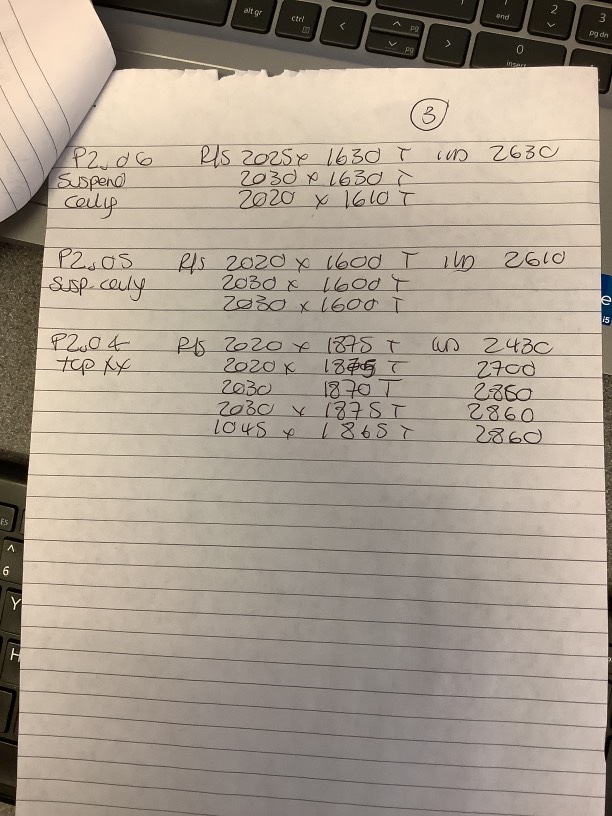 alt gr
ctrl
pg
pg
end
2
3
pg dn
0
insert
3
P2.06 R/S 2025 x 1630 T W 2630
Suspend 2030 x 1630 T
ceily 2020 x 1610 T
P2.05 R/S 2020 x 1600 T W 2610
Susp ceily 2030 x 1600 T
2030 x 1600 T
P2.04 R/S 2020 x 1875 T W 2430
2020 x T 2700
2030 1870 T 2860
2030 x 1875 T 2860
1045 x 1865 T 2860
6
Y
H
i5